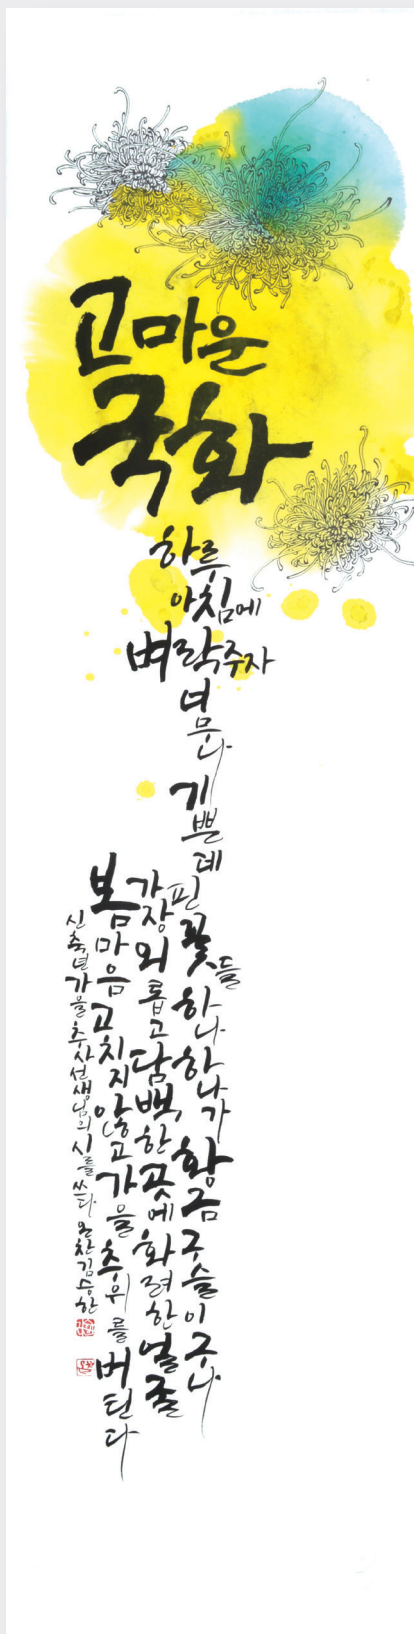 고마운
국화
하루
아침에
벼락부자
너
무
나
기
쁜
데
핀 꽃들 하나하나가 황금구슬이구나
가장 외롭고 담백한 곳에 화려한 얼굴
봄마음 고치지 않고 가을 추위를 버틴다
신축년 가을 추사선생님의 시를 쓰다 김승한